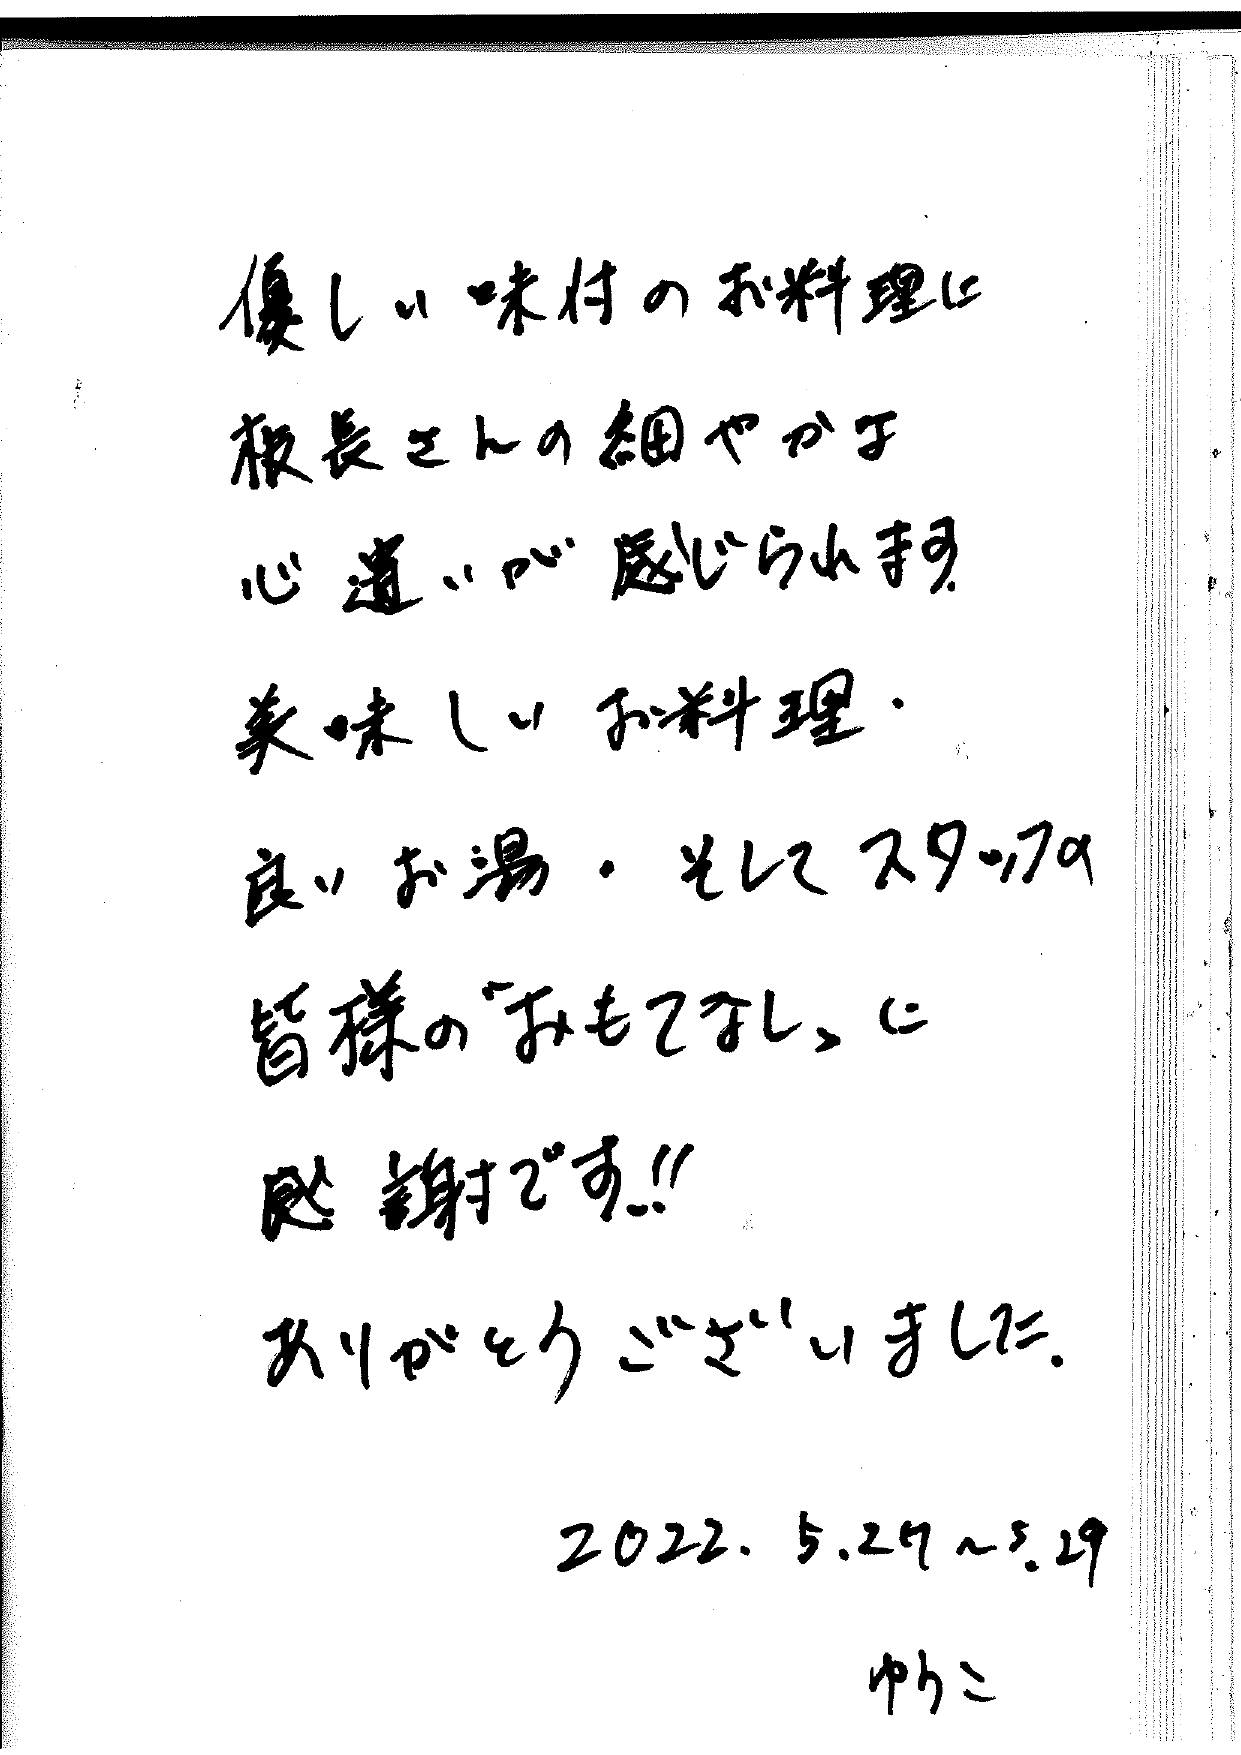 優しい味付のお料理に
板長さんの細やかな
心遣いが感じられます.
美味しいお料理・
良いお湯・そしてスタッフの
皆様の「おもてなし」に
感謝です.!!
ありがとうございました.
2022. 5.27~5.29
ゆりこ